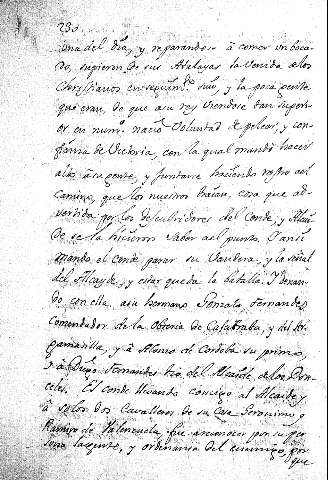 230
una del dia, y reparandose á comer un boca-
do, supieron de sus Atalayas la venida de los
Christianos en seguim.to suyo, y la poca gente
que eran, de que a su rey viendose tan superi-
or en num.o nació voluntad de pelear, y con-
fianza de Victoria, con la qual mandó hacer
alto á su gente, y juntarse haciendo rostro al
camino, que los nuestros traían, cosa que ad-
vertida por los descubridores del Conde, y Alcai-
de se la hicieron saver al punto. I ansi
mandó el conde parar su Vandera, y la señal
del Alcayde, y estar queda la batalla. I dexan-
do con ella, a su hermano Gonzalo Fernandez
Comendador de la Obreria de Calatraba, y del Ar-
gamasilla, y á Alonso de Cordoba su primo,
y á Diego Fernandez tio del Alcaide de los Don-
celes. El conde llevando consigo al Alcaide y
á solos dos Cavalleros de su Casa Geronimo y
Ramiro de Valenzuela, fue a reconocer por su per-
sona la gente, y ordenanza del enemigo, por
que